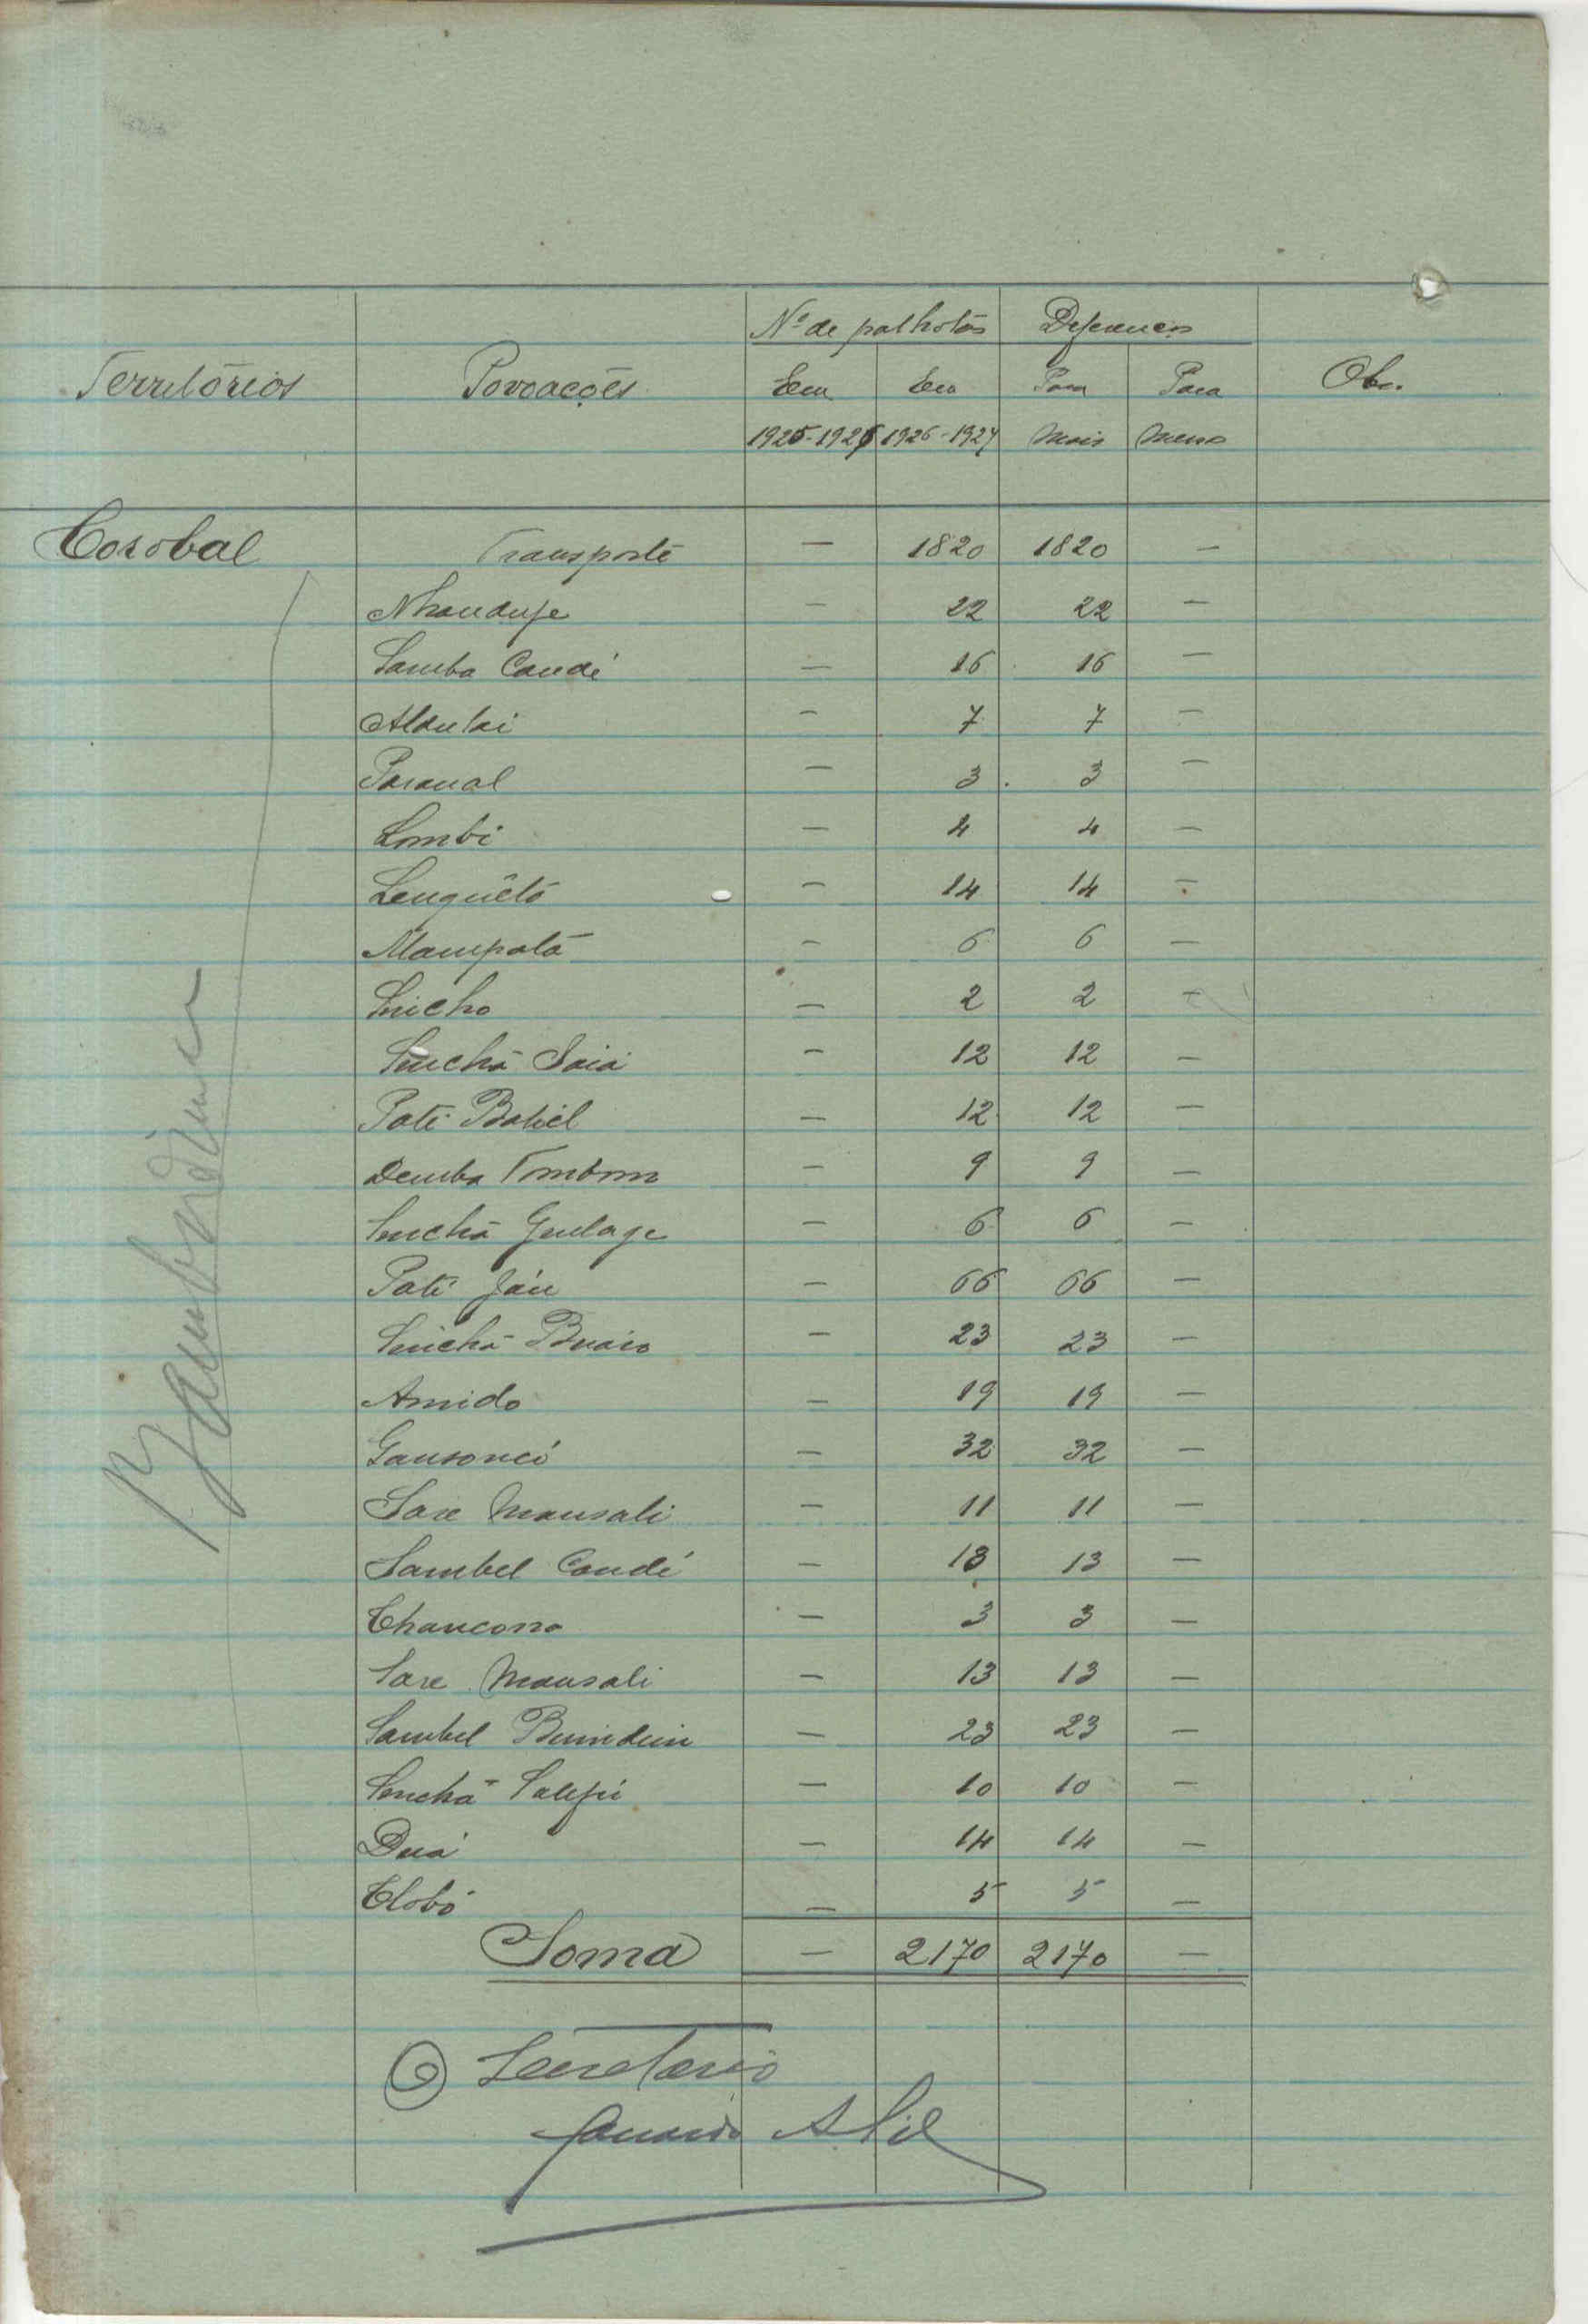 Nº de palhotas Diferenças
Territórios Povoações Em Em Para Para Obs.
1925-1926 1926-1927 Mais Menos
Corobal Transporte — 1820 1820 —
Nhanduje — 22 22 —
Samba Candé — 16 16 —
Aldulai — 7 7 —
Paranal — 3 3 —
Lombi — 4 4 —
Lenguêtó — 14 14 —
Mampatá — 6 6 —
— 2 2 —
Sinchã — 12 12 —
Paté — 12 12 —
Demba Tombom — 9 9 —
Sinchã — 6 6 —
Paté — 66 66 —
Sinchã — 23 23 —
Amido — 19 19 —
Gansoncó — 32 32 —
Sare Mansali — 11 11 —
Sambel Candé — 13 13 —
— 3 3 —
Sare Mansali — 13 13 —
Sambel — 23 23 —
Sinchã — 10 10 —
Duá — 14 14 —
— 5 5 —
Soma — 2170 2170 —
O Secretario
Bambadinca